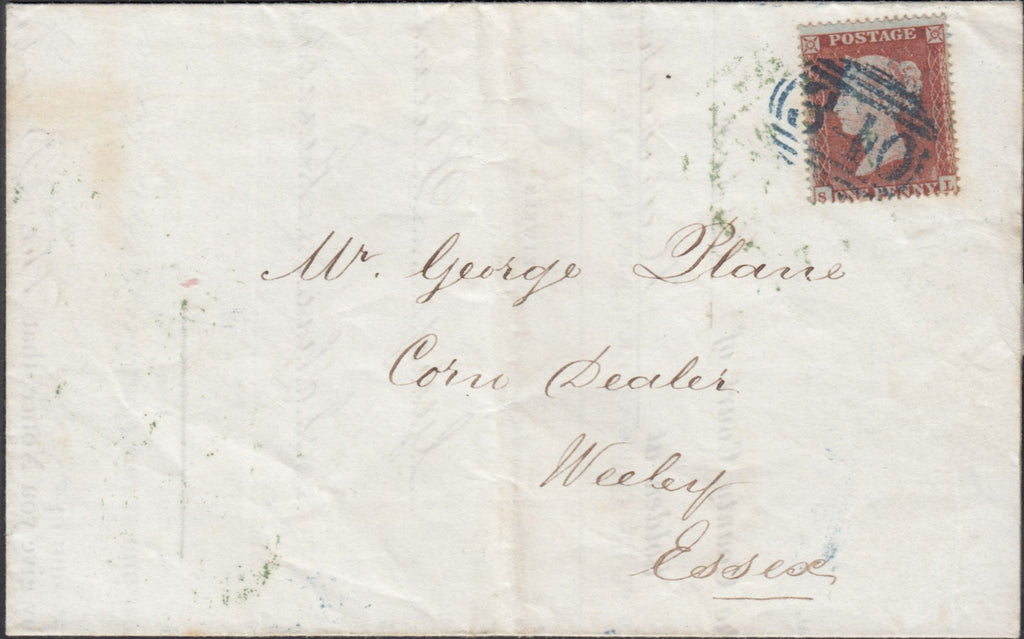 POSTAGE
S ONE PENNY L
Mr. George Plane
Corn Dealer
Weeley
Essex